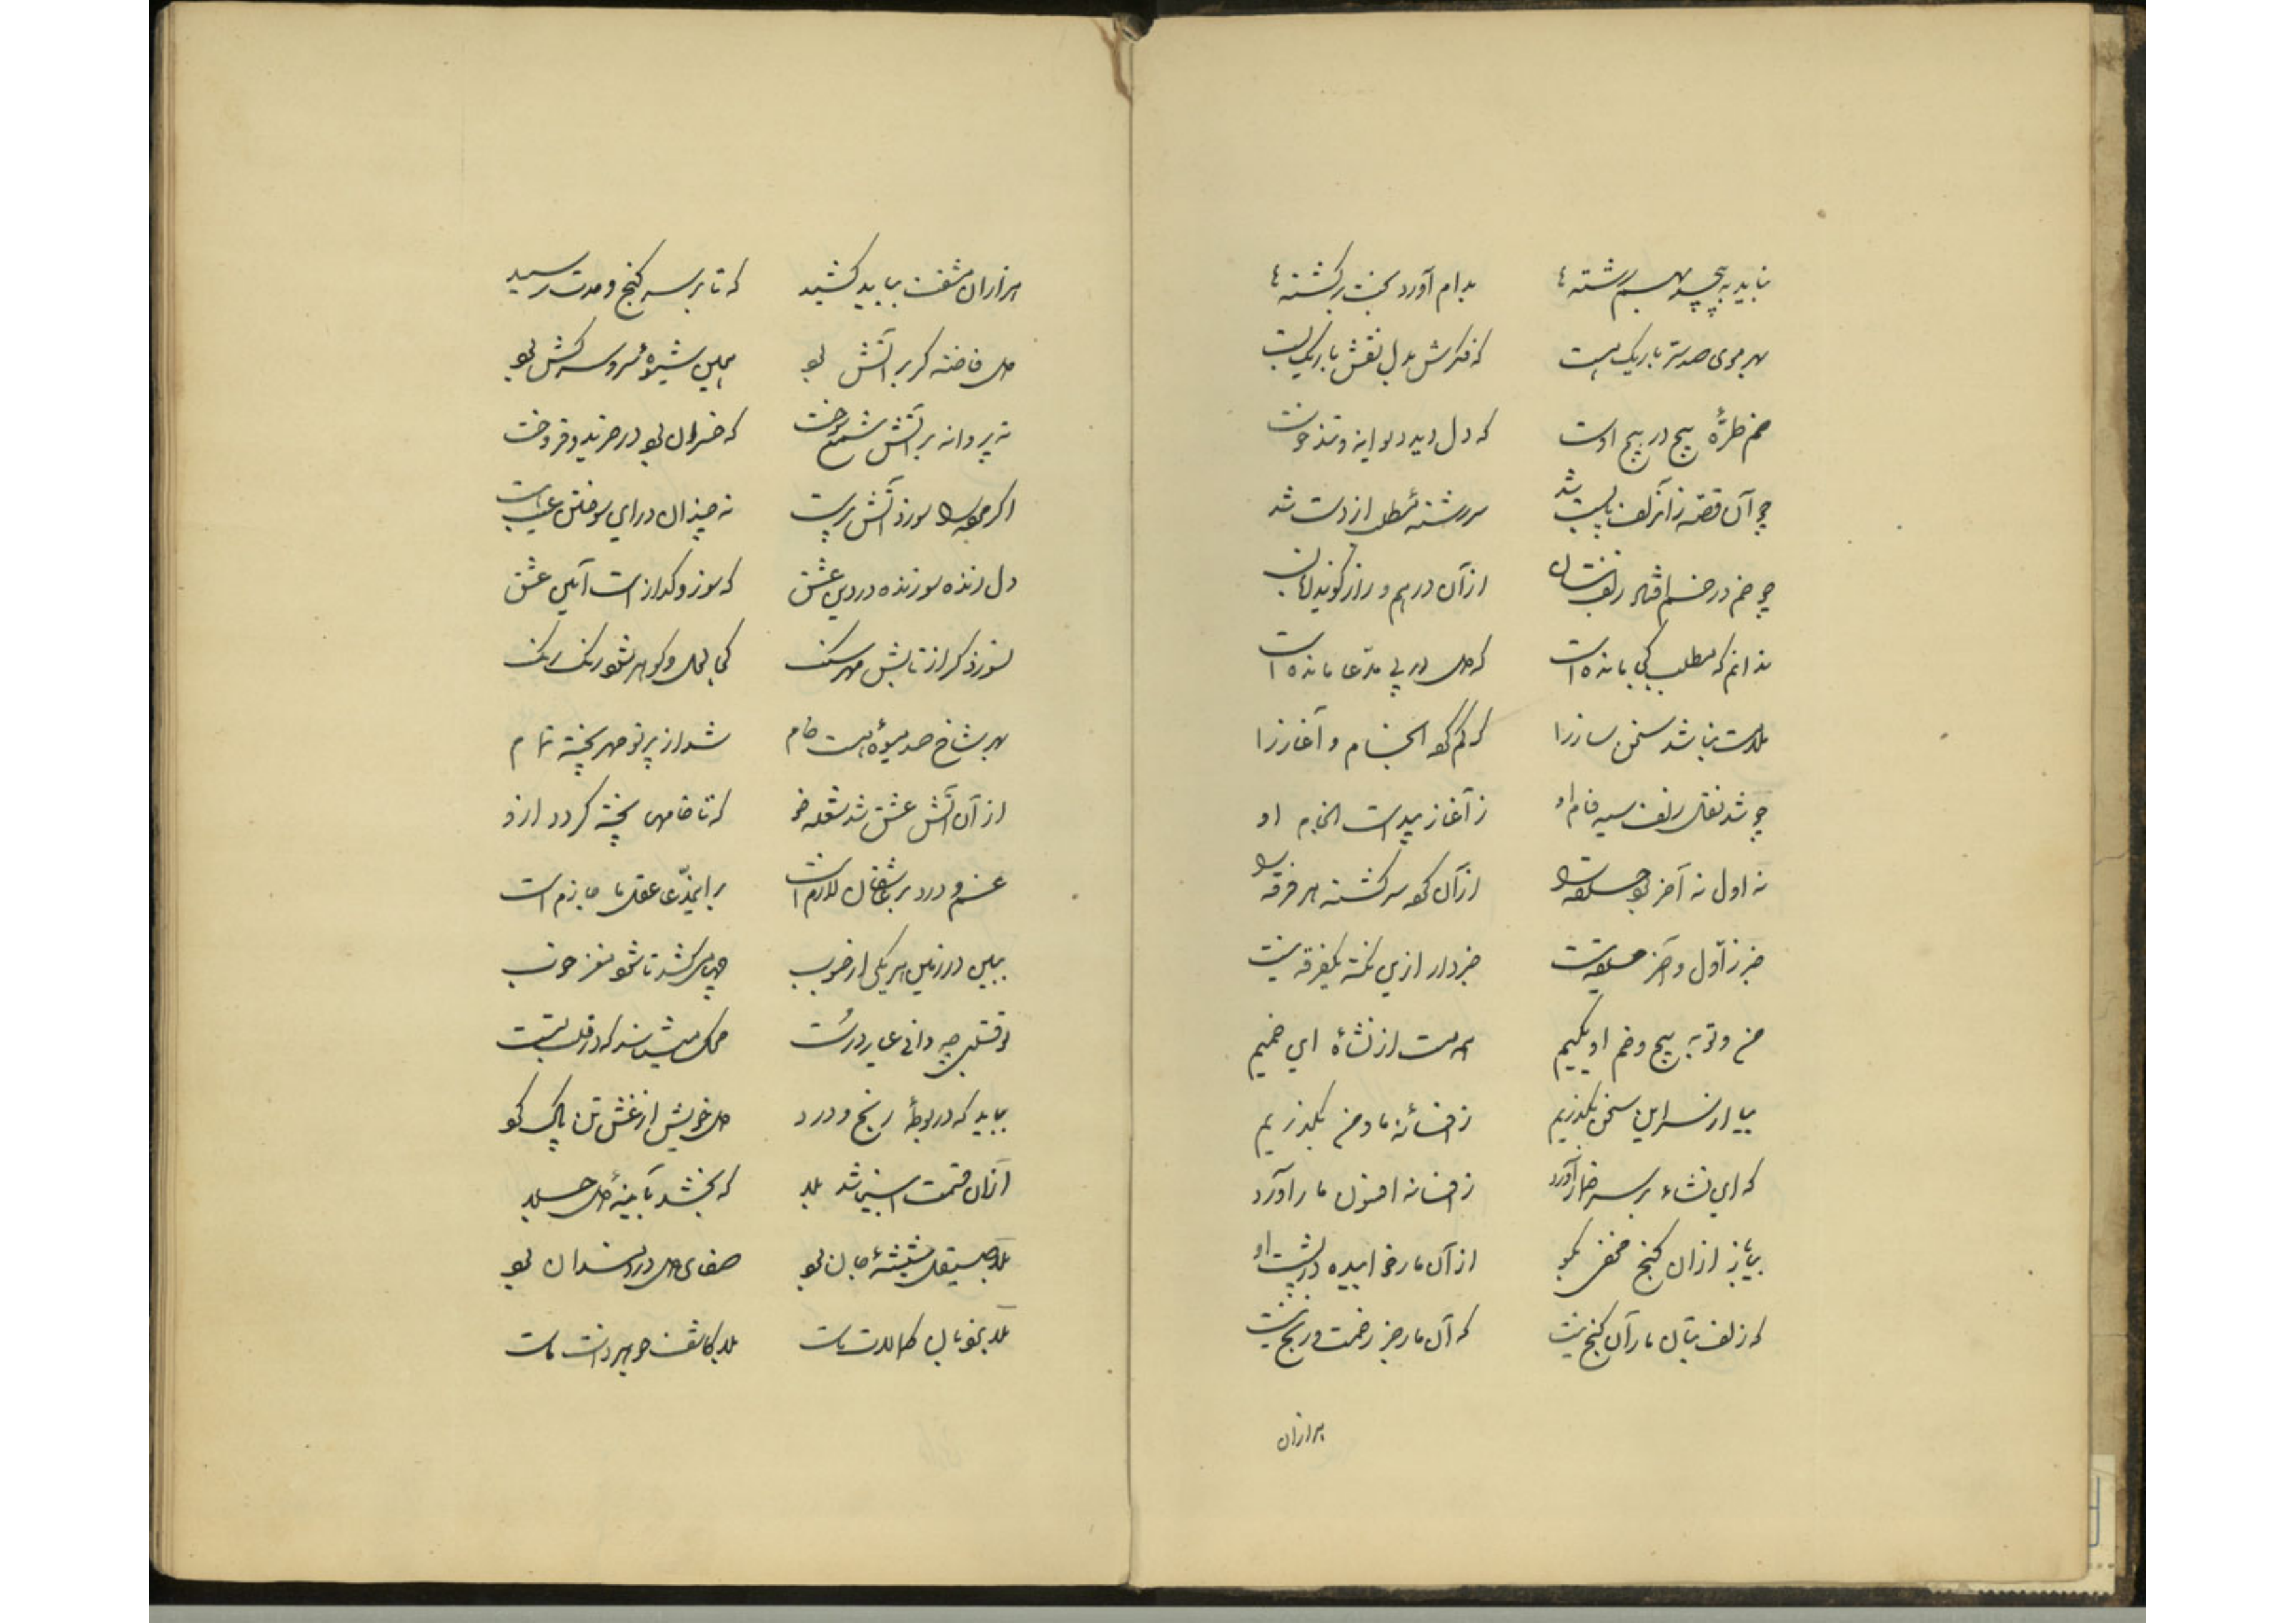 بدام آورد بخت برگشته‌ها
بهر موی صد سر باریک هست که فکرش بدل نقش باریک بست
خم طرّهٔ پیچ در پیچ اوست که دل دید دیوانه و
چو آن قصّه ز آنزلف پابست شد سررشتهٔ مطلب از دست شد
چو خم در خم زلف از آن درهم و راز گویند
ندانم که مطلب کجا مانده است که دل در پی مدّعا مانده است
نباشد سخن ساز را که گم کرد انجام و آغاز را
چو شد نقل زلف سیه فام او ز آغاز پیداست انجام او
نه اول نه آخر بود حلقه را از آن کو سرگشته هر فرقه را
خبر ز اول و آخر حلقه نیست خبردار ازین نکته یکفرقه نیست
من و تو به پیچ و خم او یکیم همه مست از نشأهٔ این خمیم
بیا از سر این سخن بگذریم ز افسانهٔ ما و من بگذریم
که این نشاء بر سر خمار آورد ز افسانه افسون مار آورد
بیا باز از آن گنج مخفی بگو از آن مار خوابیده در پشت او
که زلف بتان مار آن گنج نیست که آن مار جز زحمت و رنج نیست
هزاران
هزاران مشقت بباید کشید که تا بر سر گنج وحدت رسید
دل فاخته گر بر آتش بود همین شیوهٔ سرو سرکش بود
نه پروانه بر آتش شمع سوخت که خسران بود در خرید و فروخت
اگر سوزد آتش پرست نه چندان در این سوختن عیب است
دل زنده سوزنده در دین عشق که سوز و گداز است آیین عشق
نسوزد گر از تابش مهر سنگ کجا لعل و گوهر شود رنگ رنگ
بهر شاخ صد میوهٔ هست خام شد از پرتو مهر پخته تمام
از آن آتش عشق شد شعله خو که تا خامهی پخته گردد ازو
غم و درد بر عاشقان لازم است بر این مدّعا عقل ما جازم است
ببین در زمین هر یکی از حبوب چها میکشد تا شود مغز خوب
تو قلبی چه دانی عیار درست محک میشناسد که در قلب تست
بباید که در بوطهٔ رنج و درد دل خویش از غش تن پاک کرد
از آن قیمت شد بلا که بخشد به آیینهٔ دل جلا
بلا صیقل شیشهٔ جان بود صفای دل دردمندان بود
بلا بلا کاشف جوهر ذات ماست